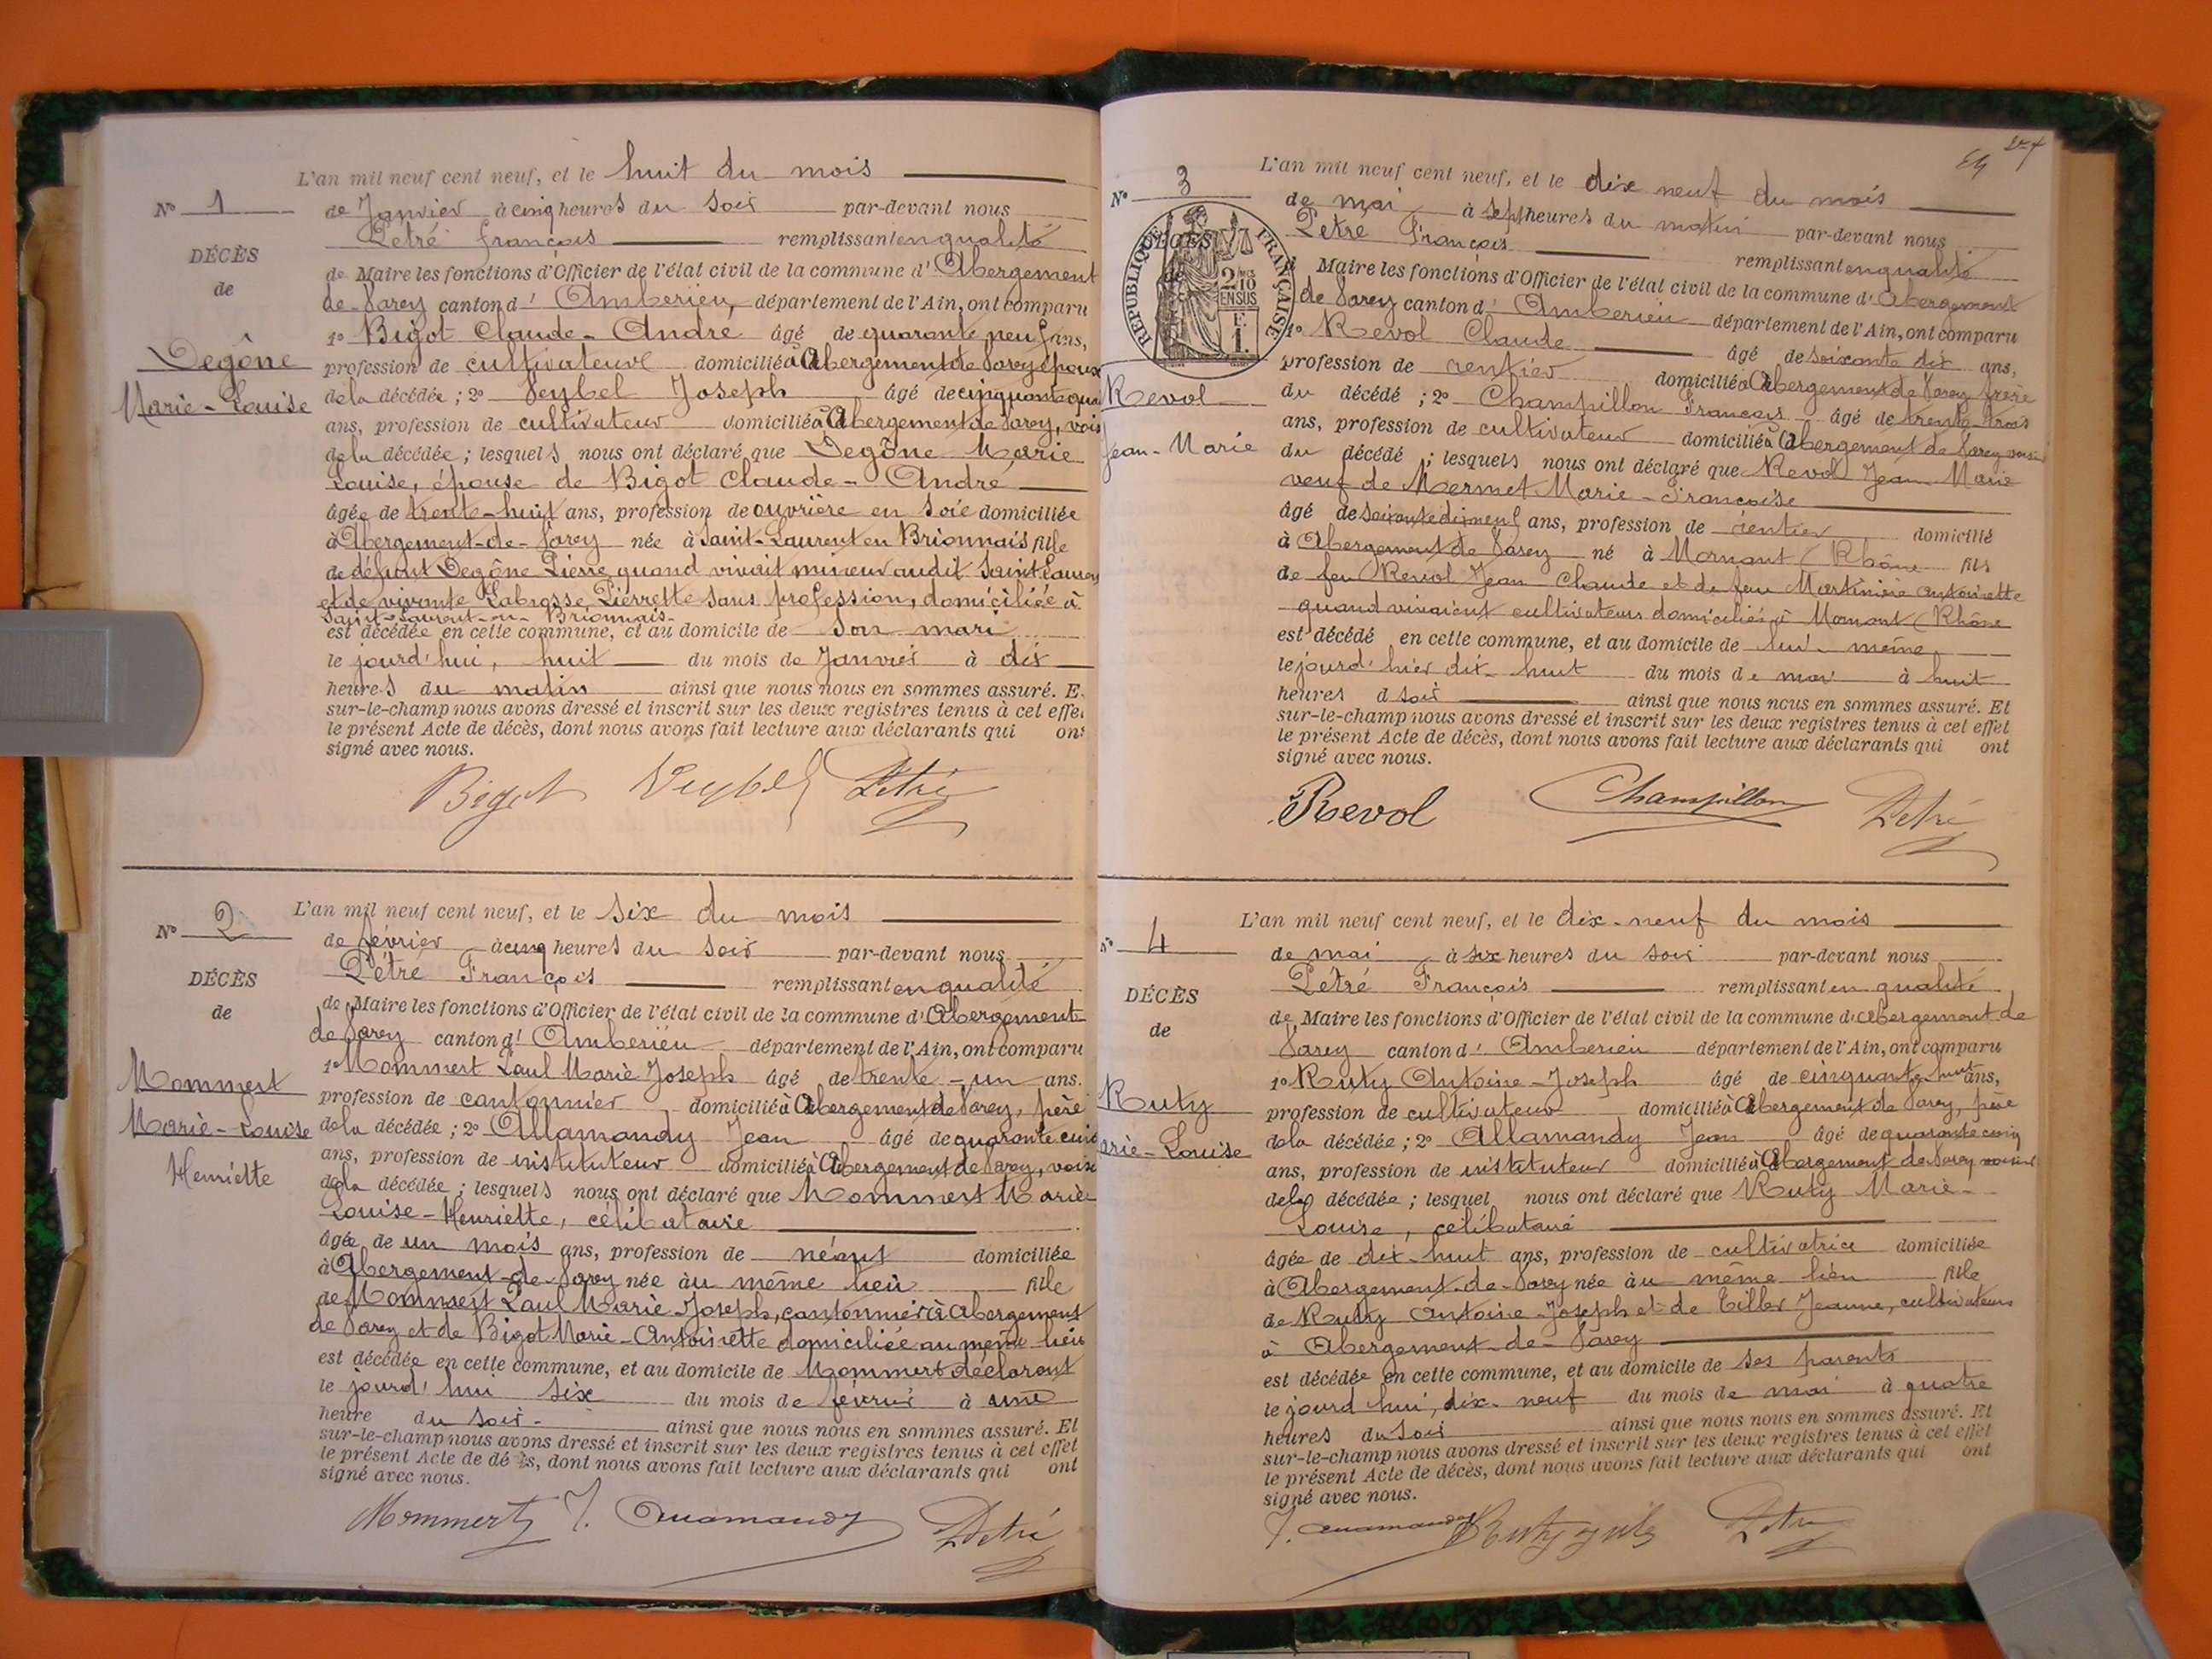 L'an mil neuf cent neuf, et le huit du mois
N° 1
de Janvier à cinq heures du soir par-devant nous
Pétré françois remplissant en qualité
DÉCÈS
de
de Maire les fonctions d'Officier de l'état civil de la commune d'Abergement
de Varey canton d'Amberieu, département de l'Ain, ont comparu
1° Bigot Claude-André âgé de quarante neuf ans,
Degône
Marie-Louise
profession de cultivateur domicilié à Abergement de Varey époux
de la décédée ; 2° Veybel Joseph âgé de cinquante qua
ans, profession de cultivateur domicilié à Abergement de Varey, vois
de la décédée ; lesquels nous ont déclaré que Degône Marie
Louise, épouse de Bigot Claude-André
âgée de trente-huit ans, profession de ouvrière en soie domiciliée
à Abergement-de-Varey née à Saint-Laurent en Brionnais fille
de défunt Degône Pierre quand vivait mineur audit Saint-Lauren
et de vivante Labrosse Pierrette sans profession, domiciliée à
Saint-Laurent-en-Brionnais-
est décédée en cette commune, et au domicile de son mari
le jourd'hui, huit du mois de Janvier à dix
heures du matin ainsi que nous nous en sommes assuré. E
sur-le-champ nous avons dressé et inscrit sur les deux registres tenus à cet effe
le présent Acte de décès, dont nous avons fait lecture aux déclarants qui ont
signé avec nous.
Bigot Veybel Pétré
L'an mil neuf cent neuf, et le six du mois
N° 2
de février à cinq heures du soir par-devant nous
Pétré François remplissant en qualité
DÉCÈS
de
de Maire les fonctions d'Officier de l'état civil de la commune d'Abergement
de Varey canton d'Amberieu département de l'Ain, ont comparu
1° Mommert Paul Marie Joseph âgé de trente-un ans.
Mommert
Marie-Louise
Henriette
profession de cantonnier domicilié à Abergement de Varey, père
de la décédée ; 2° Allamandy Jean âgé de quarante cinq
ans, profession de instituteur domicilié à Abergement de Varey, voisi
de la décédée ; lesquels nous ont déclaré que Mommert Marie
Louise-Henriette, célibataire
âgée de un mois ans, profession de néant domiciliée
à Abergement-de-Varey née à u même lieu fille
de Mommert Paul Marie Joseph, cantonnier à Abergement
de Varey et de Bigot Marie-Antoinette domiciliée au même lieu
est décédée en cette commune, et au domicile de Mommert déclarant
le jourd'hui six du mois de février à une
heure du soir- ainsi que nous nous en sommes assuré. Et
sur-le-champ nous avons dressé et inscrit sur les deux registres tenus à cet effet
le présent Acte de décès, dont nous avons fait lecture aux déclarants qui ont
signé avec nous.
Mommert J. Allamandy Pétré
L'an mil neuf cent neuf, et le dix neuf du mois
N° 3
de mai à sept heures du matin par-devant nous
Pétré François remplissant en qualité
RÉPUBLIQUE FRANÇAISE
2/10 EN SUS
F. 1.
Maire les fonctions d'Officier de l'état civil de la commune d'Abergement
de Varey canton d'Amberieu département de l'Ain, ont comparu
1° Revol Claude âgé de soixante dix ans,
Revol
Jean-Marie
profession de rentier domicilié à Abergement de Varey frère
du décédé ; 2° Champillon François âgé de trente-trois
ans, profession de cultivateur domicilié à Abergement de Varey voisin
du décédé ; lesquels nous ont déclaré que Revol Jean-Marie
veuf de Mermet Marie-Françoise
âgé de soixante dix neuf ans, profession de rentier domicilié
à Abergement de Varey né à Mornant (Rhône fils
de feu Revol Jean Claude et de feu Martinière Antoinette
quand vivaient cultivateurs domiciliés à Mornant (Rhône
est décédé en cette commune, et au domicile de lui-même
le jourd'hier dix-huit du mois de mai à huit
heures d soir ainsi que nous nous en sommes assuré. Et
sur-le-champ nous avons dressé et inscrit sur les deux registres tenus à cet effet
le présent Acte de décès, dont nous avons fait lecture aux déclarants qui ont
signé avec nous.
Revol Champillon Pétré
L'an mil neuf cent neuf, et le dix-neuf du mois
N° 4
de mai à six heures du soir par-devant nous
Pétré François remplissant en qualité
DÉCÈS
de
de Maire les fonctions d'Officier de l'état civil de la commune d'Abergement de
Varey canton d'Amberieu département de l'Ain, ont comparu
1° Ruty Antoine-Joseph âgé de cinquante-huit ans,
Ruty
arie-Louise
profession de cultivateur domicilié à Abergement de Varey, père
de la décédée ; 2° Allamandy Jean âgé de quarante cinq
ans, profession de instituteur domicilié à Abergement de Varey voisin
de la décédée ; lesquel nous ont déclaré que Ruty Marie-
Louise, célibataire
âgée de dix-huit ans, profession de cultivatrice domiciliée
à Abergement-de-Varey née à u même lieu fille
de Ruty Antoine-Joseph et de Tiller Jeanne, cultivateurs
à Abergement-de-Varey
est décédée en cette commune, et au domicile de ses parents
le jourd'hui, dix-neuf du mois de mai à quatre
heures du soir ainsi que nous nous en sommes assuré. Et
sur-le-champ nous avons dressé et inscrit sur les deux registres tenus à cet effet
le présent Acte de décès, dont nous avons fait lecture aux déclarants qui ont
signé avec nous.
J. Allamandy Ruty Pétré